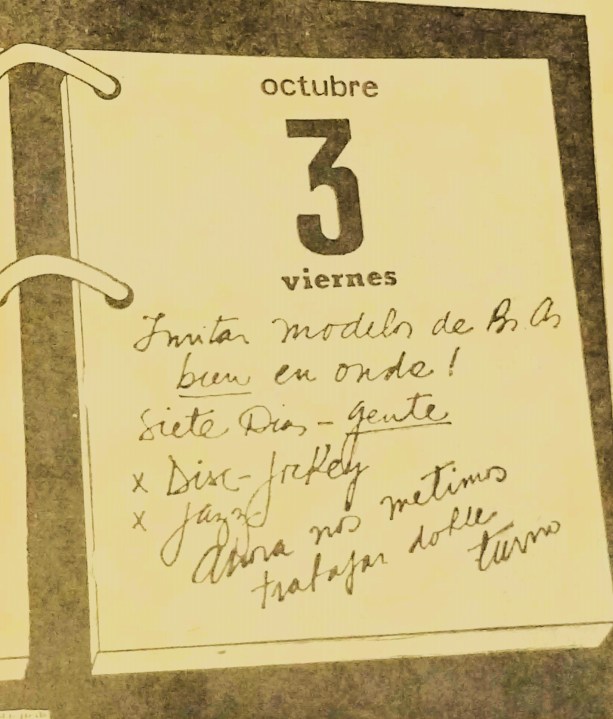 octubre
3
viernes
Invitar modelos de Bs. As
bien en onda!
Siete Dias - gente
x Disc-Jockey
x jazz
ahora nos metimos
trabajar doble
turno